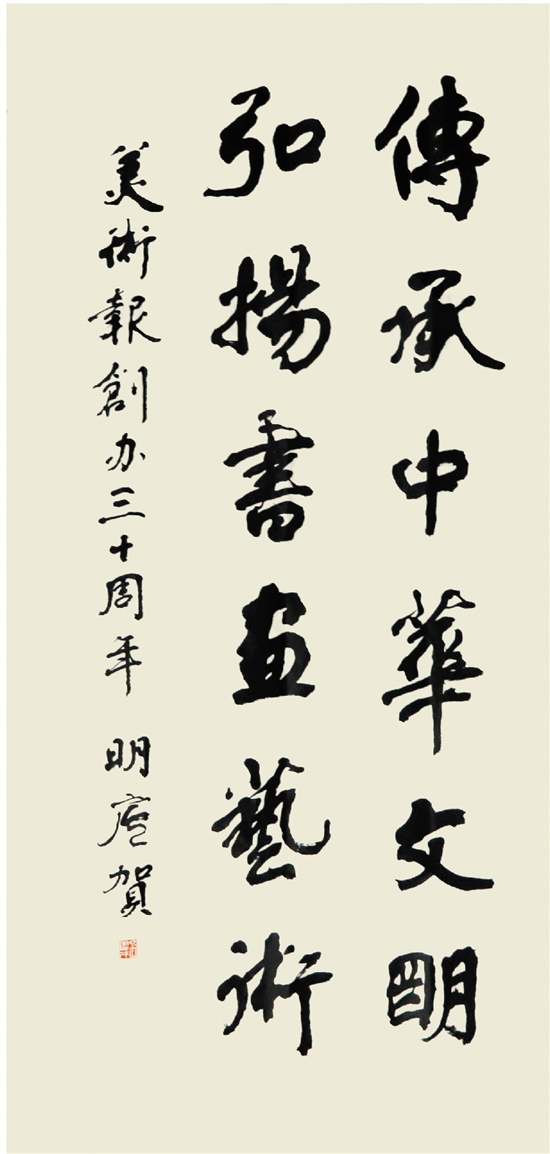 傳承中華文明
弘揚書画藝術
美術報創办三十周年 明庵賀